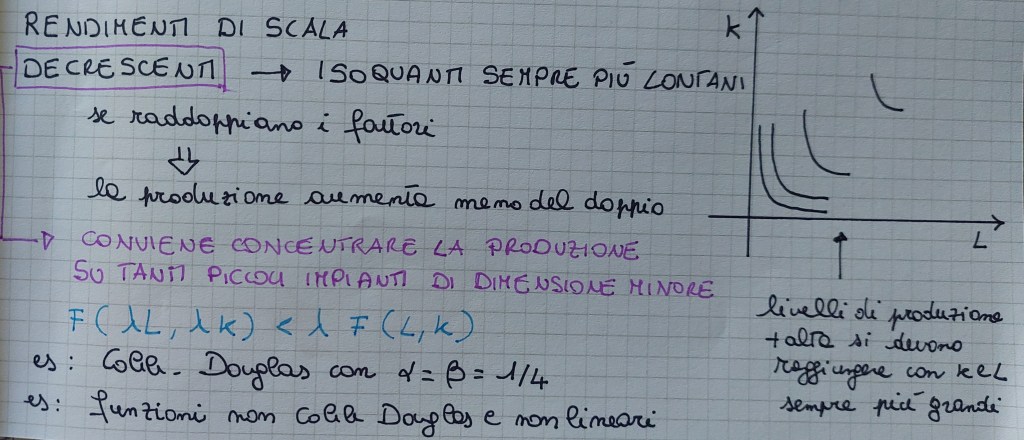 RENDIMENTI DI SCALA
DECRESCENTI → ISOQUANTI SEMPRE PIÙ LONTANI
se raddoppiano i fattori
⇓
la produzione aumenta meno del doppio
CONVIENE CONCENTRARE LA PRODUZIONE
SU TANTI PICCOLI IMPIANTI DI DIMENSIONE MINORE
F(λL, λK) < λ F(L,K)
es: Cobb-Douglas con α = β = 1/4
es: funzioni non Cobb Douglas e non lineari
K
L
livelli di produzione
+ alta si devono
raggiungere con K e L
sempre più grandi